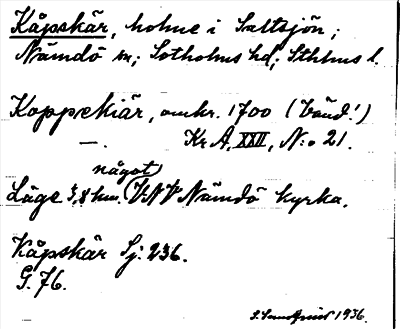 Kåpskär, holme i Saltsjön;
Nämdö sn; Sotholms hd; Sthlms l.
Koppekiär, omkr. 1700 (båud!)
— . Kr A, XXII, N:o 21.
Läge 3,8 km. något V.N.V Nämdö kyrka.
Kåpskär Sj. 236.
G. 76.
1936.